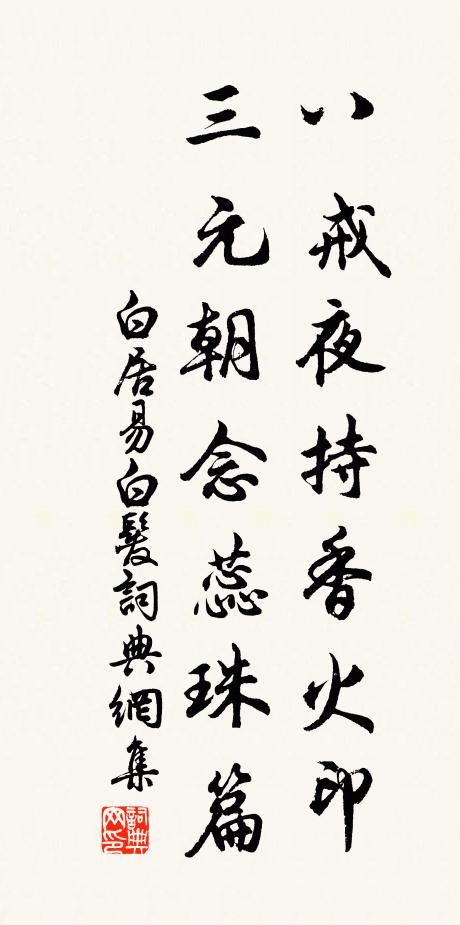 八戒夜持香火印
三元朝念蕊珠篇
白居易白髮詞典網集
詞典網印